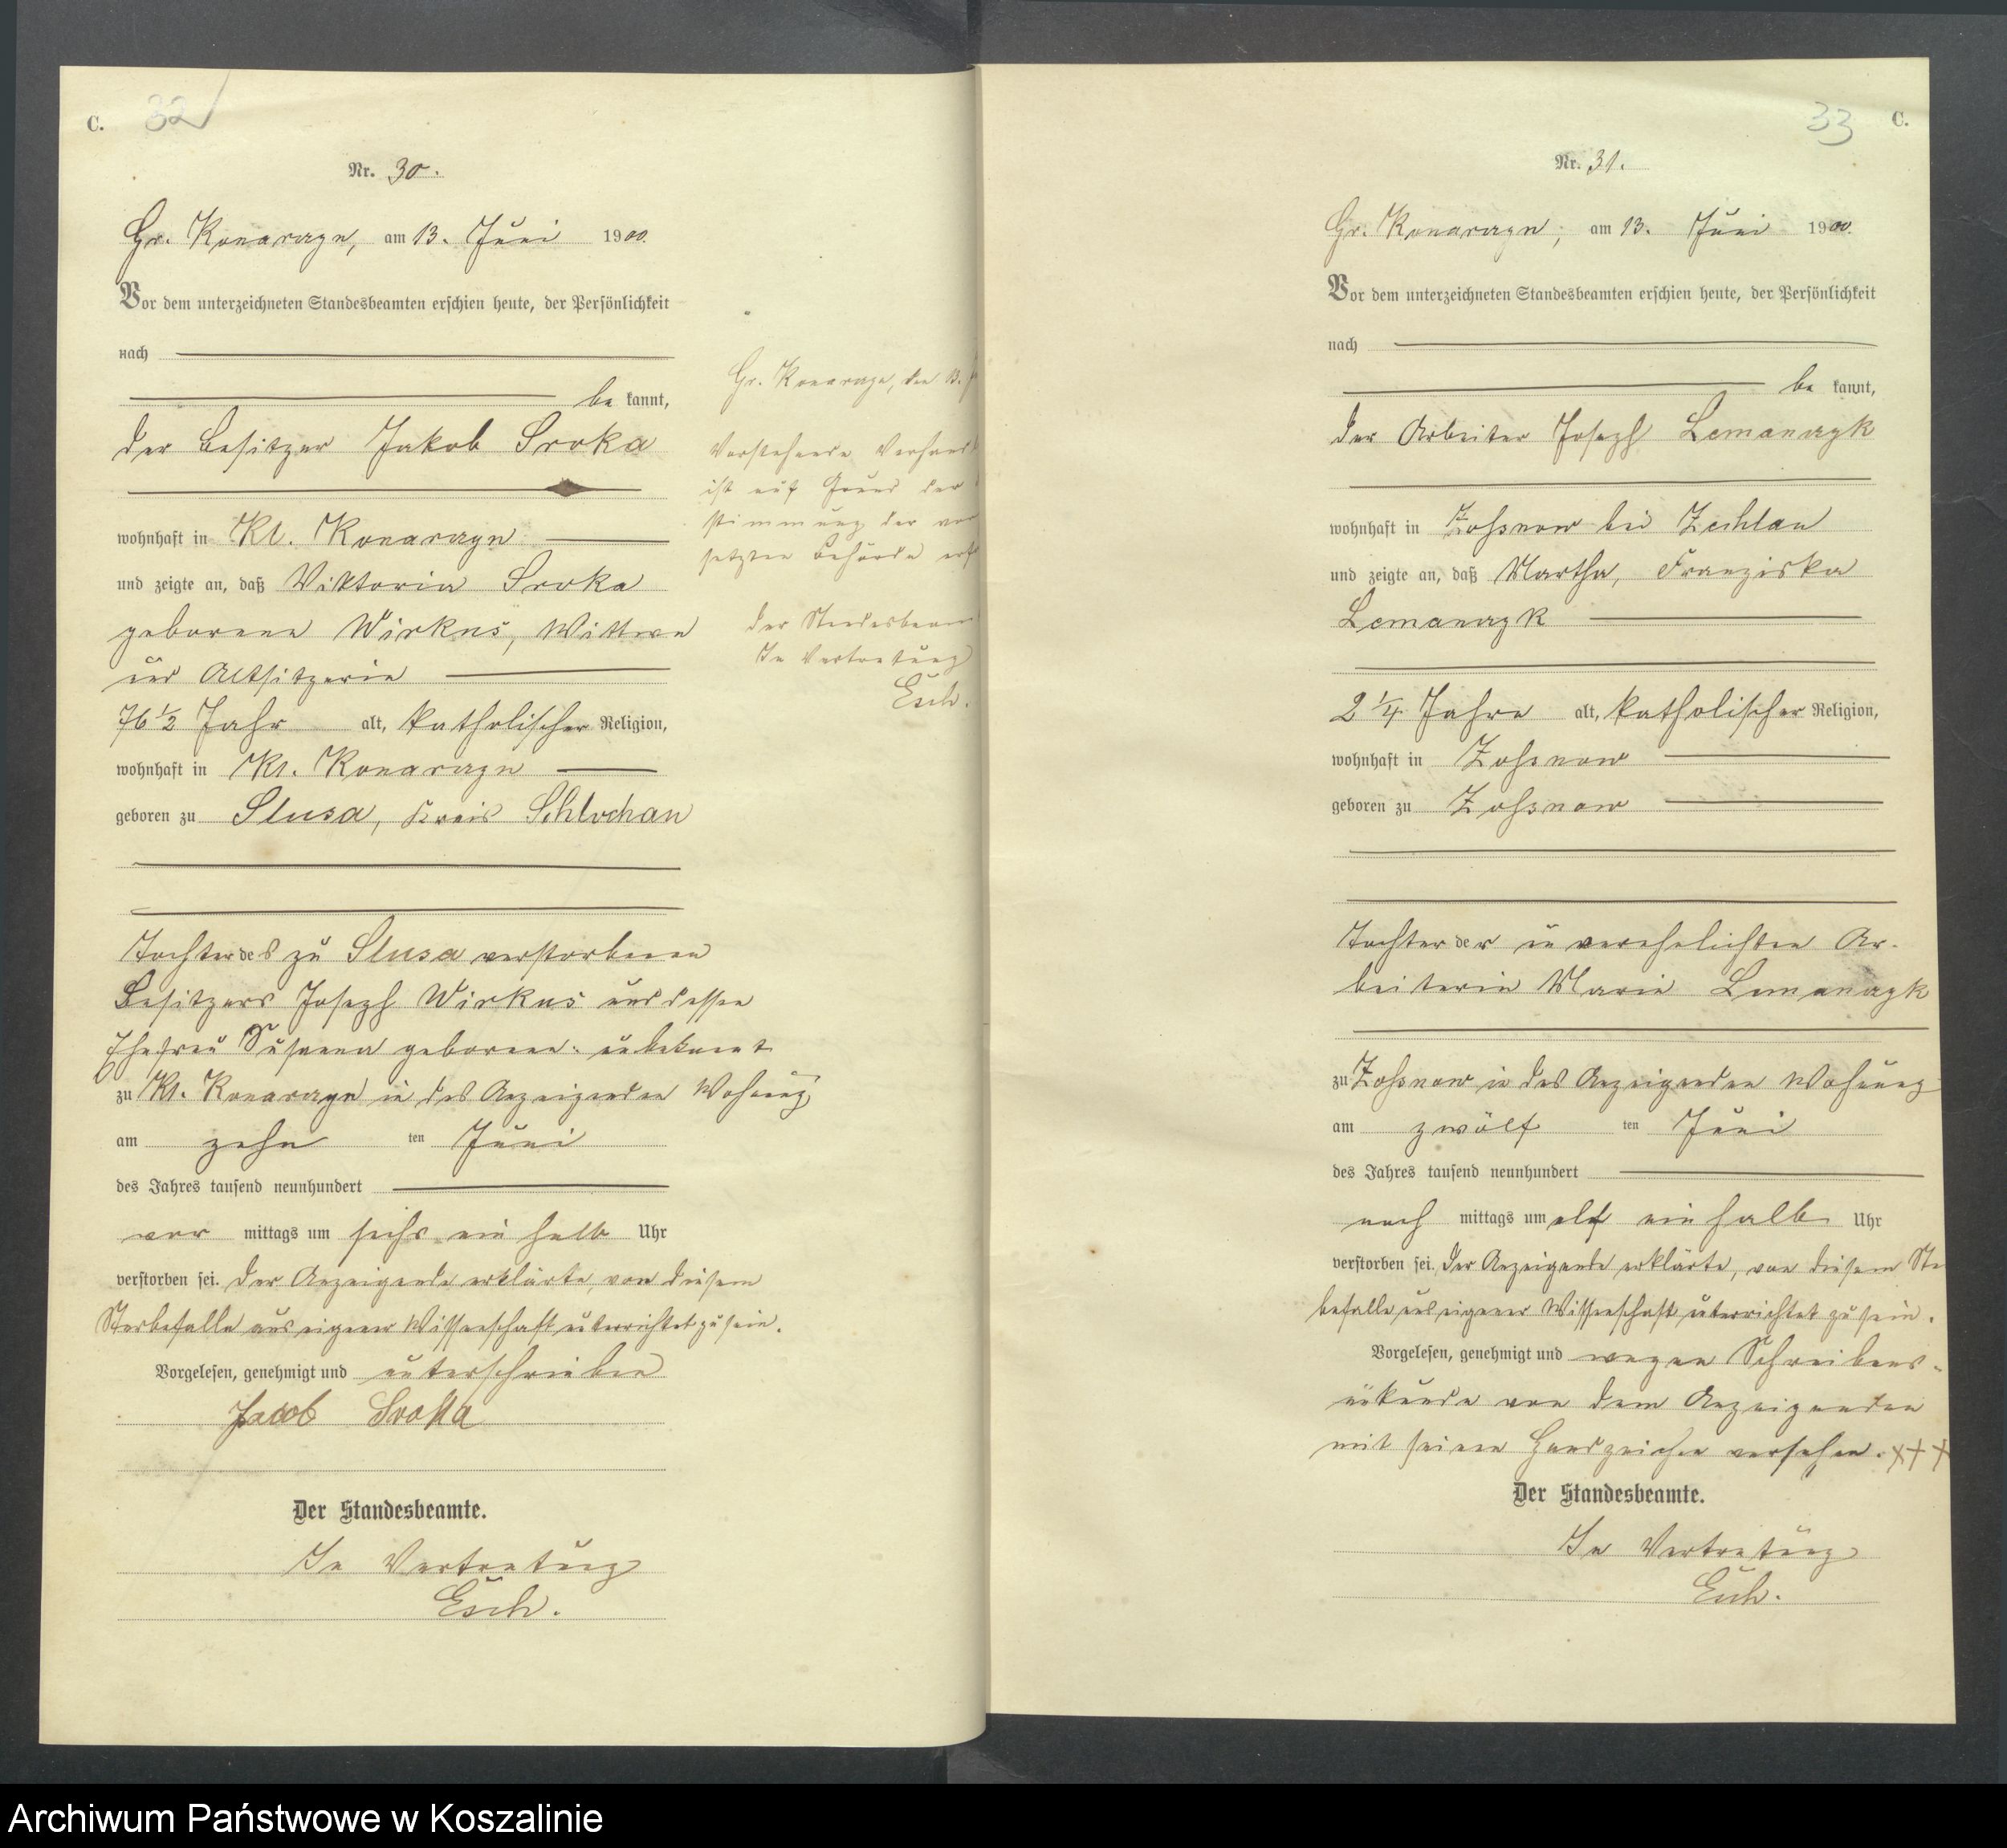 C. 32
Nr. 30.
Gr. Konarczyn, am 13. Juni 1900.
Vor dem unterzeichneten Standesbeamten erschien heute, der Persönlichkeit
nach
be kannt,
der Besitzer Jakob Sroka
wohnhaft in Kl. Konarczyn
und zeigte an, daß Viktoria Sroka
geborene Wirkus, Wittwe
und Altsitzerin
76 1/2 Jahr alt, katholischer Religion,
wohnhaft in Kl. Konarczyn
geboren zu Slusa, Kreis Schlochau
Tochter des zu Slusa verstorbenen
Besitzers Joseph Wirkus und dessen
Ehefrau Susanna geborene: unbekannt
zu Kl. Konarczyn in des Anzeigenden Wohnung
am zehn ten Juni
des Jahres tausend neunhundert
vor mittags um sechs ein halb Uhr
verstorben sei. Der Anzeigende erklärte, von diesem
Sterbefalle aus eigener Wissenschaft unterrichtet zu sein.
Vorgelesen, genehmigt und unterschrieben
Jacob Sroka
Der Standesbeamte.
In Vertretung
Esch.
Gr. Konarczyn, den 13. J
Vorstehende Verhand
ist auf Grund der
stimmung der vor
setzten Behörde erf
Der Standesbeam
In Vertretung
Esch.
33 C.
Nr. 31.
Gr. Konarczyn, am 13. Juni 1900.
Vor dem unterzeichneten Standesbeamten erschien heute, der Persönlichkeit
nach
be kannt,
der Arbeiter Joseph Lemanczyk
wohnhaft in Zossnow bei Zechlau
und zeigte an, daß Martha, Franziska
Lemanczyk
2 1/4 Jahre alt, katholischer Religion,
wohnhaft in Zossnow
geboren zu Zossnow
Tochter der unverehelichten Ar-
beiterin Maria Lemanczyk
zu Zossnow in des Anzeigenden Wohnung
am zwölf ten Juni
des Jahres tausend neunhundert
nach mittags um elf ein halb Uhr
verstorben sei. Der Anzeigende erklärte, von diesem Ste
befalle aus eigener Wissenschaft unterrichtet zu sein.
Vorgelesen, genehmigt und wegen Schreibens-
unkunde von dem Anzeigenden
mit seinem Handzeichen versehen. +++
Der Standesbeamte.
In Vertretung
Esch.
Archiwum Państwowe w Koszalinie